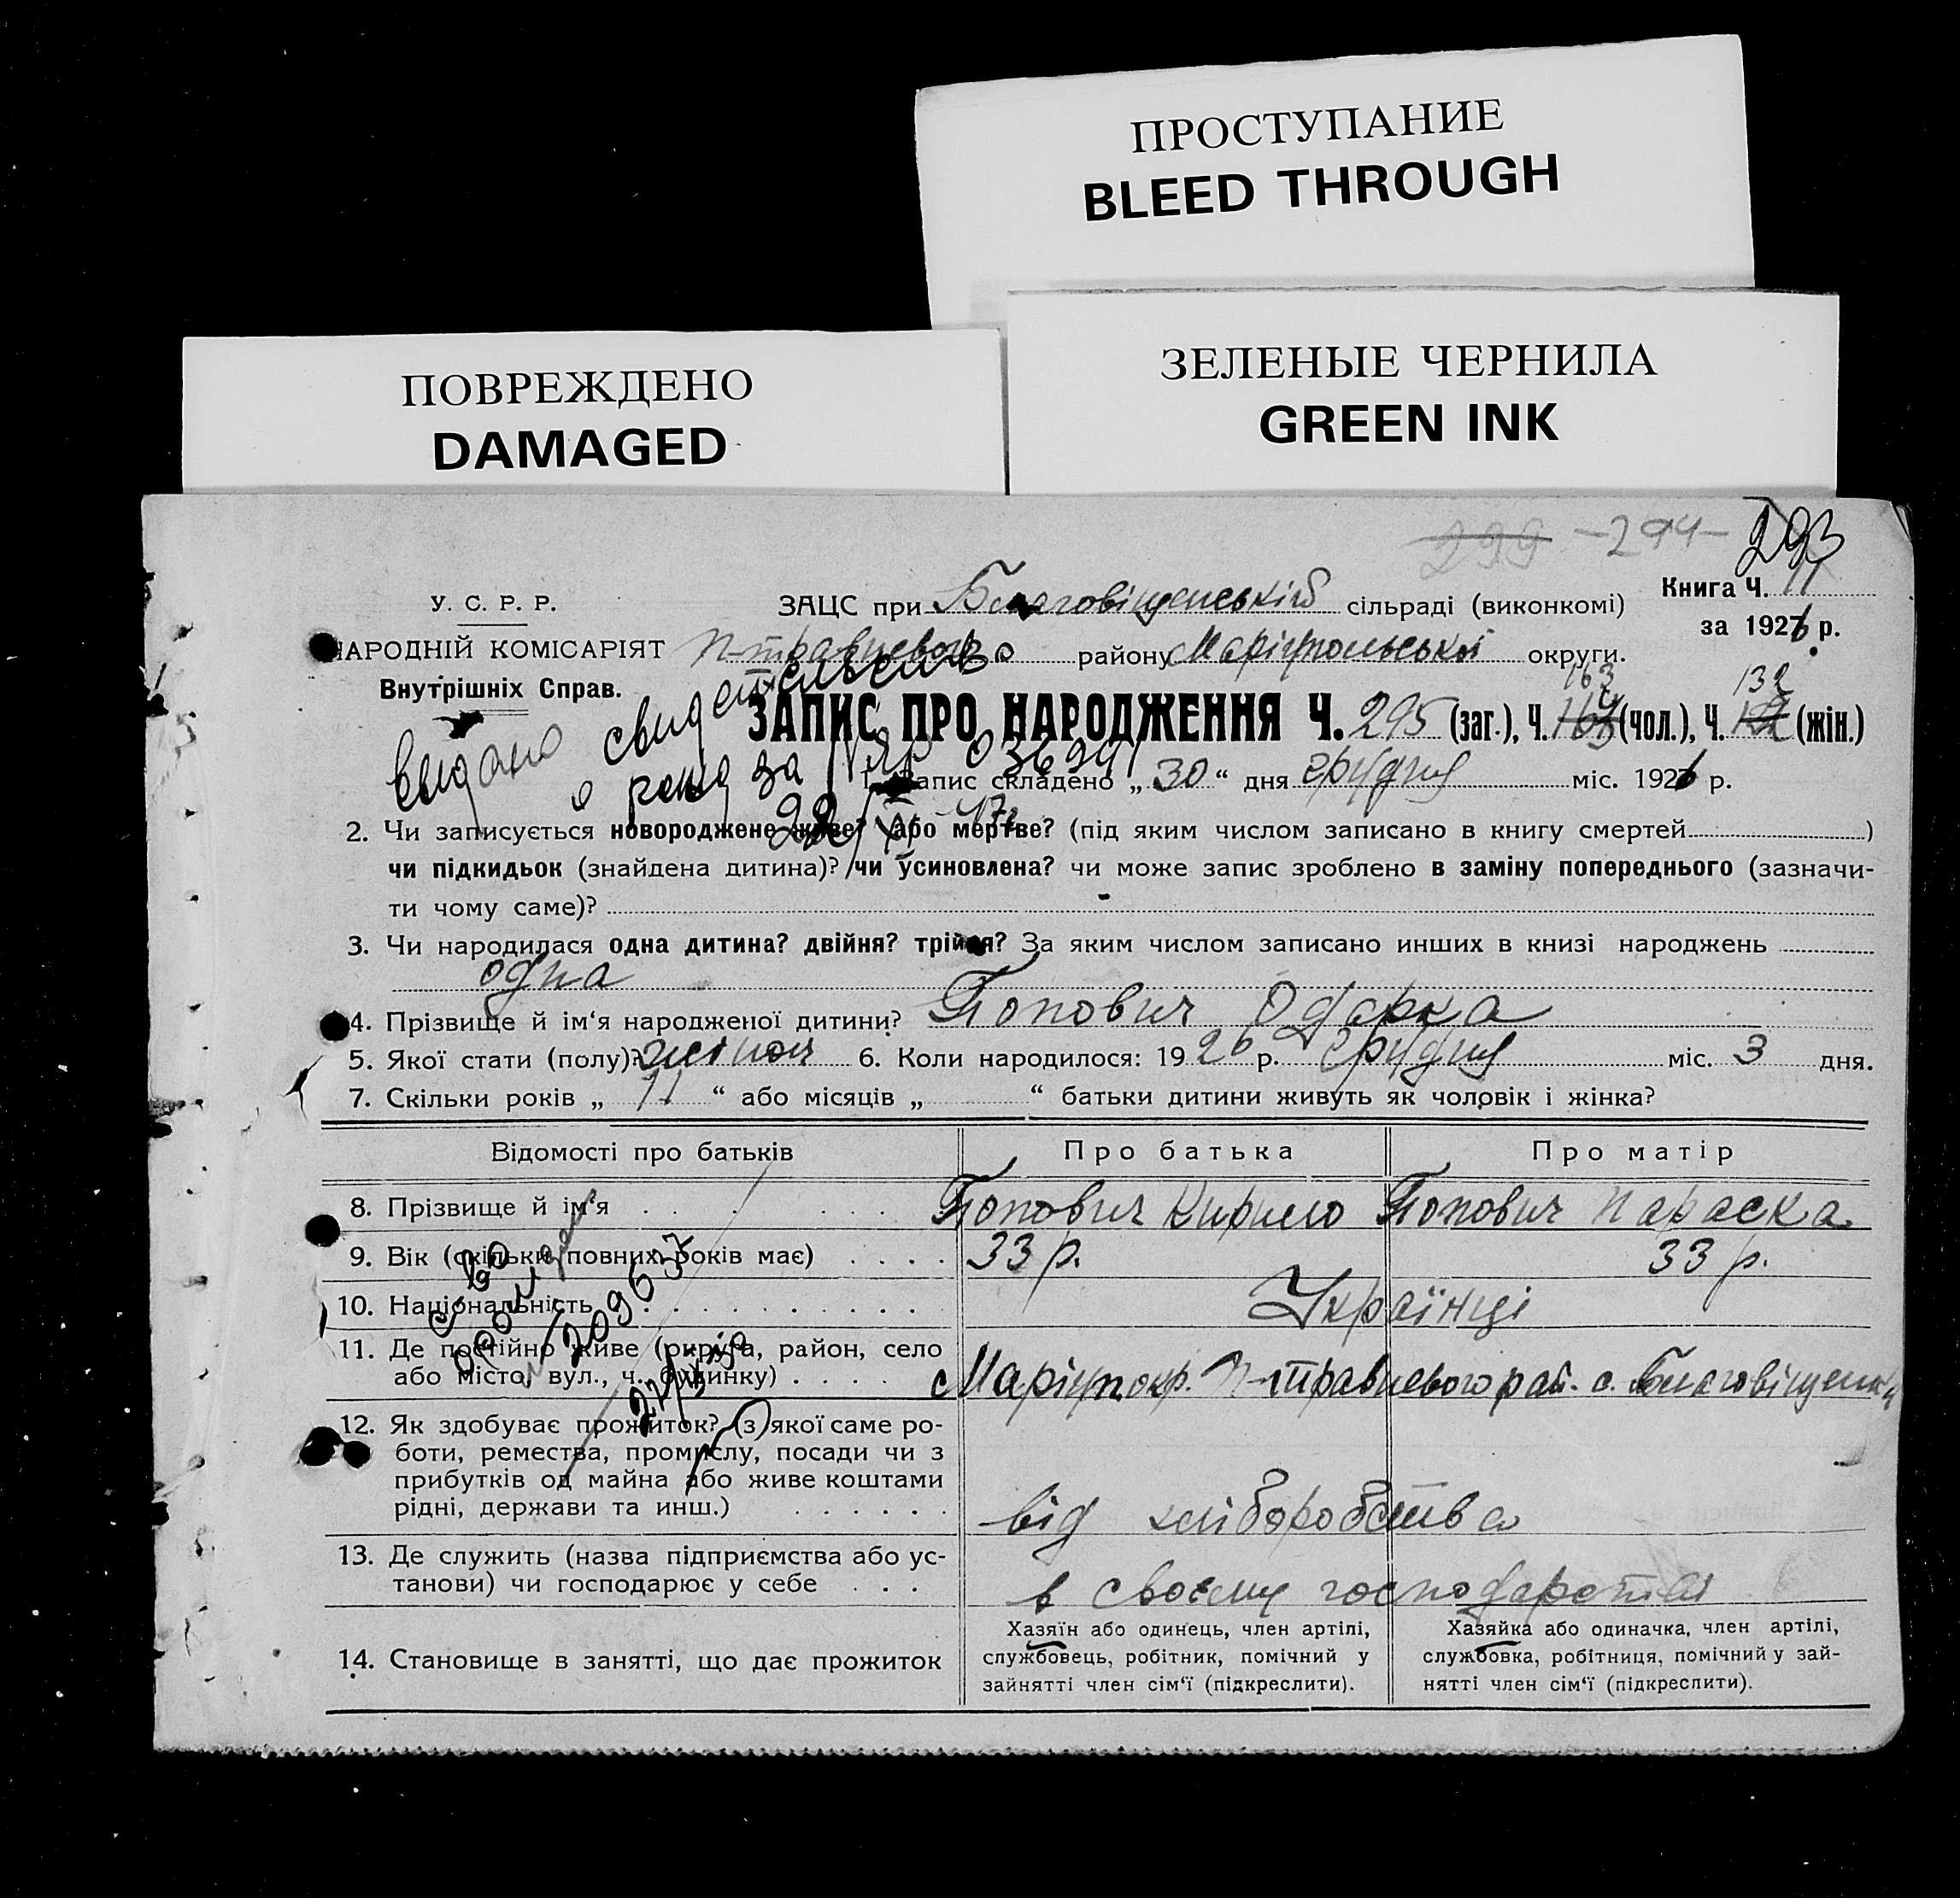 ПРОСТУПАНИЕ
BLEED THROUGH
ПОВРЕЖДЕНО
DAMAGED
ЗЕЛЕНЫЕ ЧЕРНИЛА
GREEN INK
299 -294- 293
У. С. Р. Р.
НАРОДНІЙ КОМІСАРІЯТ
Внутрішніх Справ.
ЗАЦС при Благовіщенській сільраді (виконкомі)
П-травневого району Маріупольської округи.
Книга Ч. 11
за 1926 р.
163 132
ЗАПИС ПРО НАРОДЖЕННЯ Ч. 295 (заг.), Ч. (чол.), Ч. (жін.)
видано свидетельство
о рожд за № 036941
22/XI-47г
1. Запис складено „ 30 “ дня грудня міс. 1926 р.
2. Чи записується новороджене живе? або мертве? (під яким числом записано в книгу смертей )
чи підкидьок (знайдена дитина)? чи усиновлена? чи може запис зроблено в заміну попереднього (зазначи-
ти чому саме)? -
3. Чи народилася одна дитина? двійня? трійня? За яким числом записано инших в книзі народжень
одна
4. Прізвище й ім‘я народженої дитини? Попович Одарка
5. Якої стати (полу)? жіноч 6. Коли народилося: 1926 р. грудня міс. 3 дня.
7. Скільки років „ 11 “ або місяців „ “ батьки дитини живуть як чоловік і жінка?
Відомості про батьків Про батька Про матір
8. Прізвище й ім‘я . . . . . . Попович Кирило Попович Параска
9. Вік (скільки повних років має) . . . . 33 р. 33 р.
10. Національність . . . . . . . . . . Українці
11. Де постійно живе (округа, район, село
або місто, вул., ч. будинку) . . . . Маріуп окр. П-травневого рай. с. Благовіщенка
209637
12. Як здобуває прожиток? (з якої саме ро-
боти, ремества, промислу, посади чи з
прибутків од майна або живе коштами
рідні, держави та инш.) . . . . . . від хліборобства
13. Де служить (назва підприємства або ус-
танови) чи господарює у себе . . . в своєму господарстві
14. Становище в занятті, що дає прожиток
Хазяїн або одинець, член артілі,
службовець, робітник, помічний у
зайнятті член сім‘ї (підкреслити).
Хазяйка або одиначка, член артілі,
службовка, робітниця, помічний у зай-
нятті член сім‘ї (підкреслити).